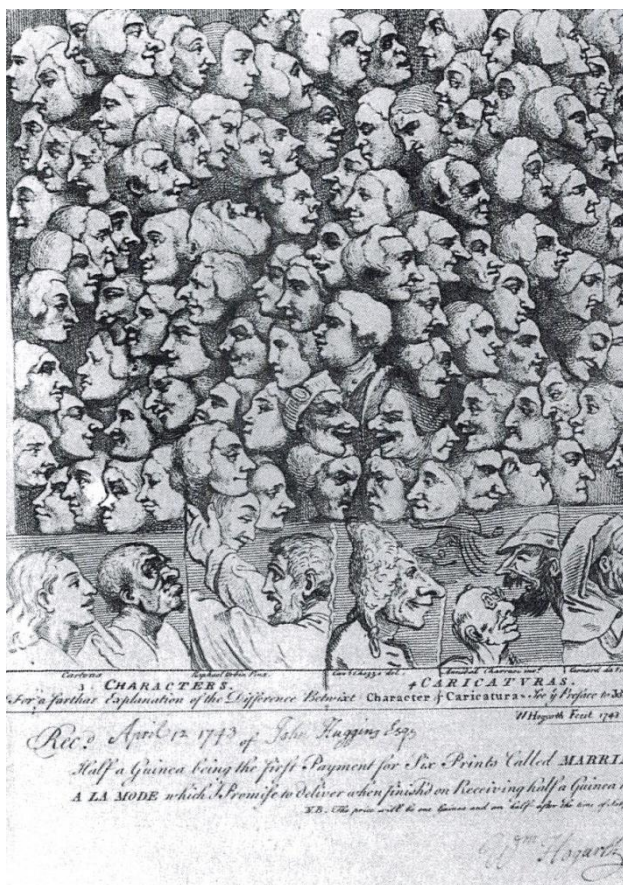 Cartons Raphael Urbin Pinx. Cav.r Chezze del. Annibal Charraci inv.t Leonard da
3 CHARACTERS. 4 CARICATVRAS.
For a farthar Explanation of the Difference Betwixt Character & Caricatura See yᵉ Preface to
W Hogarth Fecit 1743
Rec.d April 12 1743 of John Huggins Esqr
Half a Guinea being the first Payment for Six Prints Called MARRIA
A LA MODE which I Promise to deliver when finish'd on Receiving half a Guinea
N.B. The price will be one Guinea and an half after the time of
Wm Hogarth